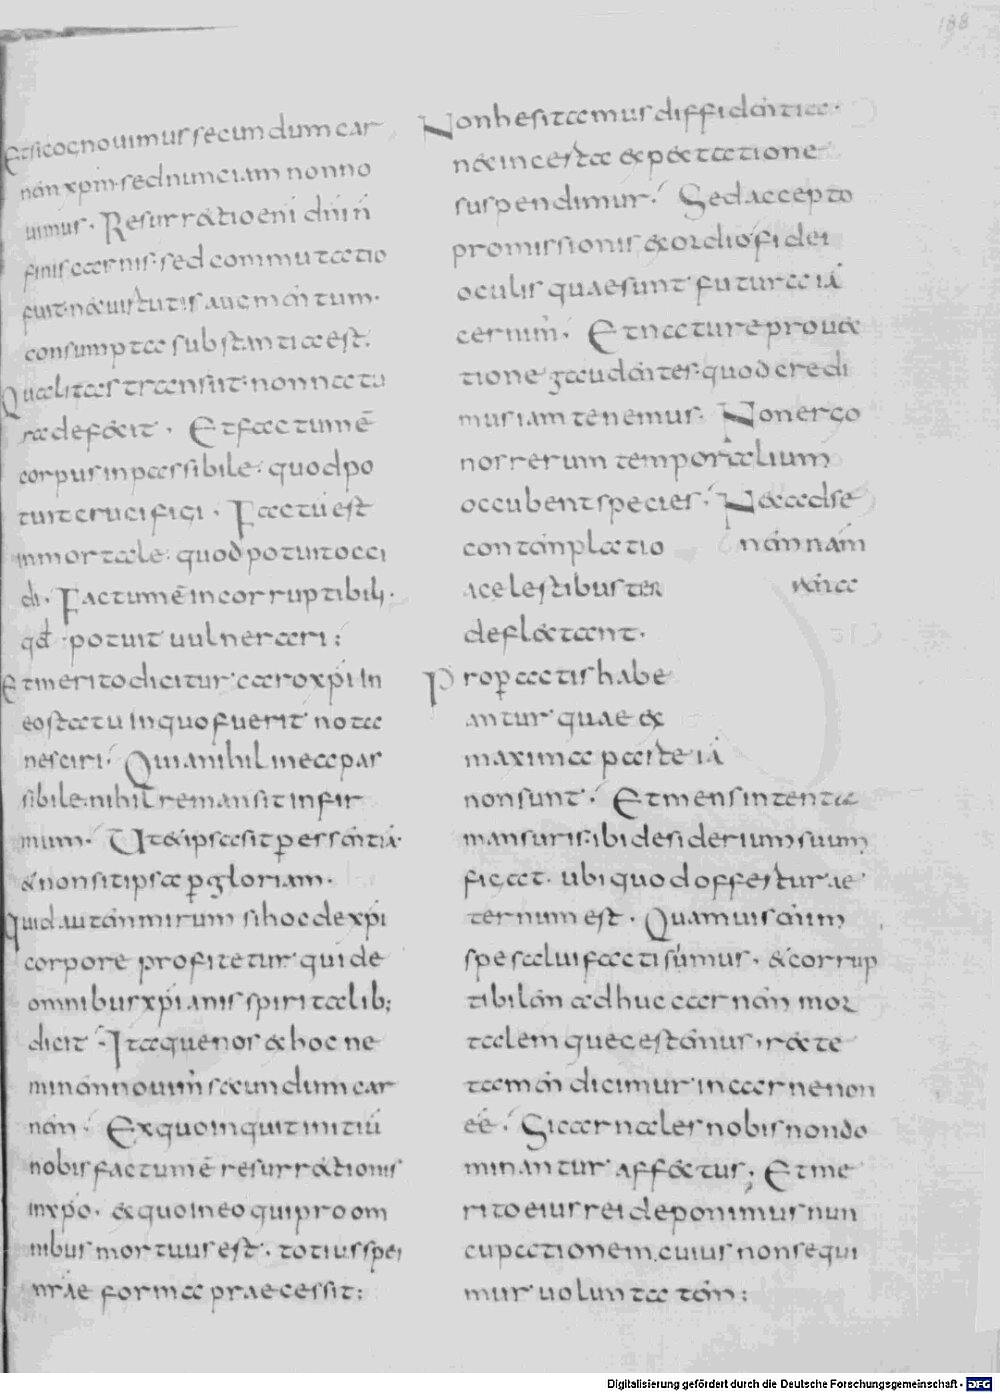 188
Et si eog nouimus secundum car
nem xpm. sed nunc iam non no
uimus. Resurrectio eni dnin
finis carnis. sed commutatio
fuit. nec uirtutis augmentum.
consumpta substantia est.
Qualitas transiit. non natu
ra defecit. Et factum ē
corpus inpassibile. quod po
tuit crucifigi. Factū est
inmortale. quod potuit occi
di. Factum ē incorruptibili.
qđ potuit uulnerari;
Et merito dicitur caro xpi in
eo statu in quo fuerit nota
nesciri. Quia nihil in ea pas
sibile. nihil remansit infir
mum. Ut et ipsa sit per essentiā.
et non sit ipsa per gloriam.
Quid autem mirum si hoc de xpi
corpore profitetur qui de
omnibus xpianis spiritalib;
dicit. Itaque nos ex hoc ne
minem nouim secundum car
nem. Ex quo inquit initiū
nobis factum ē resurrectionis
in xpo. ex quo in eo qui pro om
nibus mortuus est. totius spei
nrae forma praecessit;
Non hesitamus diffidentia.
nec incerta expectatione
suspendimur. Sed accepto
promissionis exordio fidei
oculis quae sunt futura iā
cernim. Et nature prouec
tione gaudentes. quod credi
mus iam tenemus. Non ergo
nos rerum temporalium
occubent species. Nec ad se
contemplatio nem nam
a celestibus ter rena
deflectant.
Pro peractis habe
antur quae ex
maxima parte iā
non sunt. Et mens intenta
mansuris. ibi desiderium suum
figat. ubi quod offertur ae
ternum est. Quamuis enim
spe salui facti sumus. et corrup
tibilem adhuc carnem mor
talemque gestemus. recte
tamen dicimur in carne non
eē. Si carnales nobis non do
minantur affectus; Et me
rito eius rei deponimus nun
cupationem. cuius non sequi
mur uoluntatem;
Digitalisierung gefördert durch die Deutsche Forschungsgemeinschaft - DFG